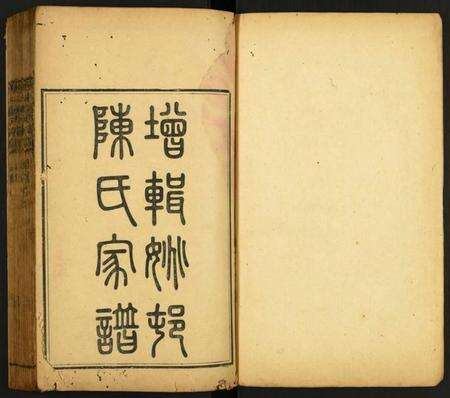 增輯姚邨
陳氏家譜